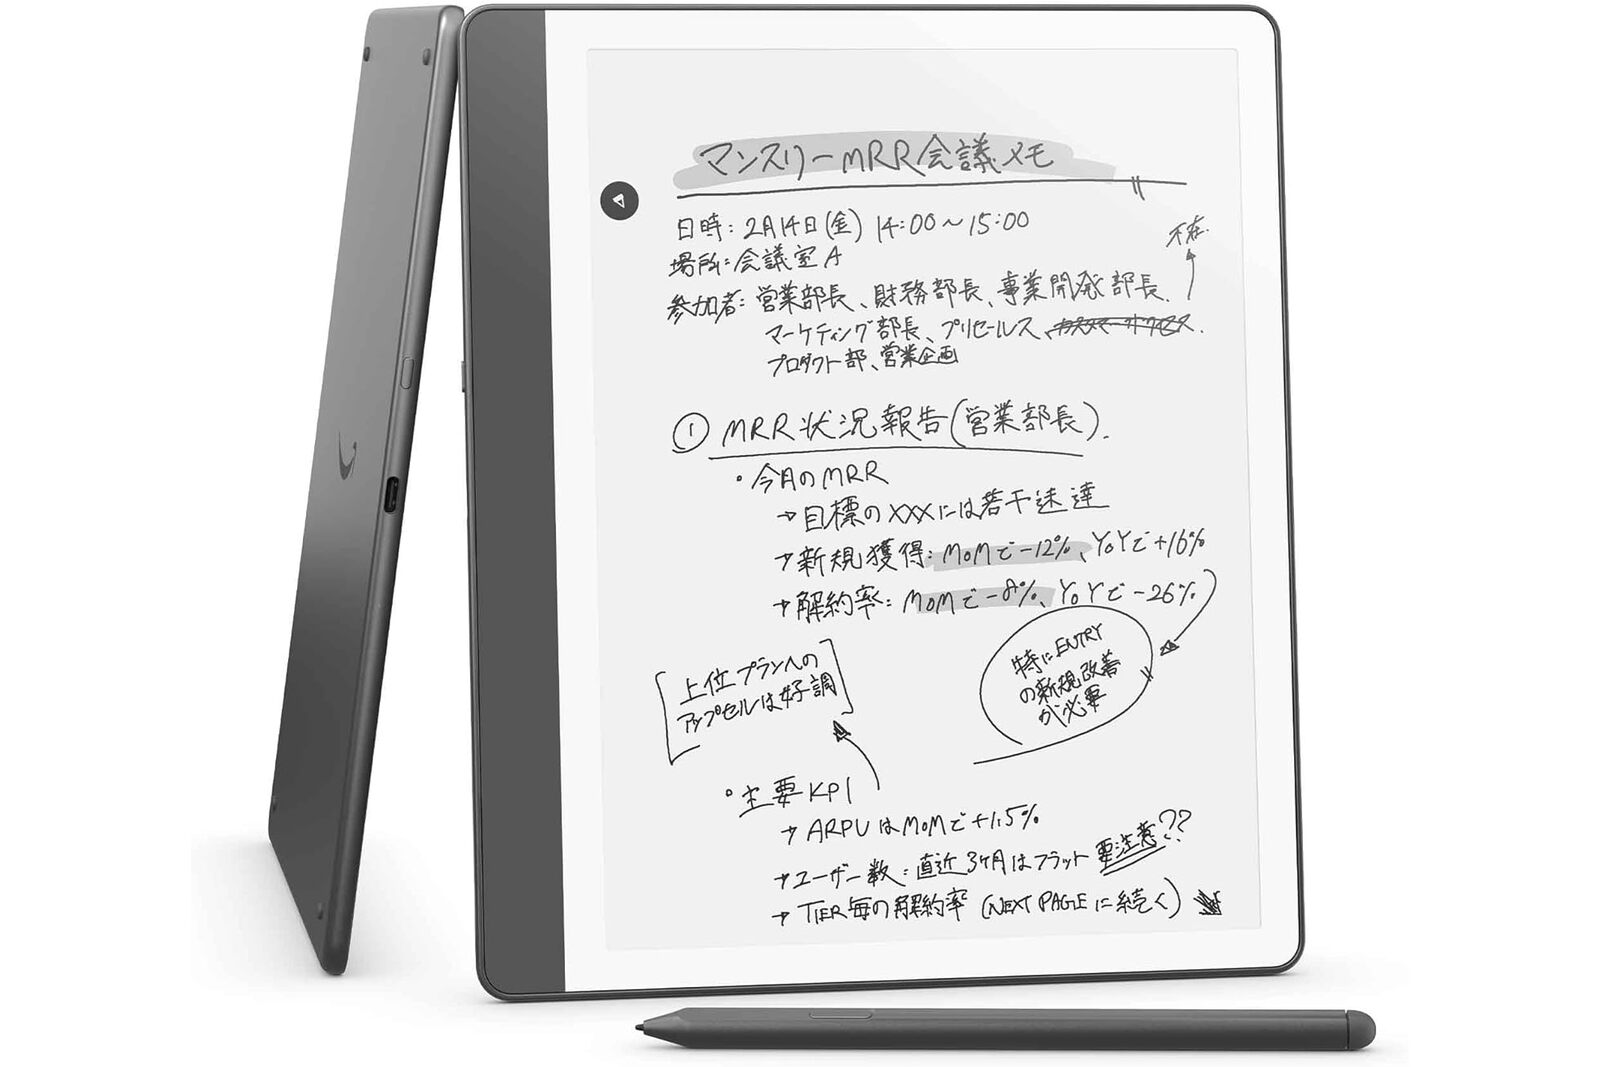 マンスリーMRR会議メモ
日時：2月14日(金) 14:00〜15:00
不在.
場所：会議室A
参加者：営業部長、財務部長、事業開発部長、
マーケティング部長、プリセールス、カスタマーサクセス.
プロダクト部、営業企画
① MRR状況報告(営業部長).
・今月のMRR
→目標のXXXには若干未達
→新規獲得：MoMで-12%、YoYで+16%
→解約率：MoMで-8%、YoYで-26%
特にENTRY
の新規改善
が必要
上位プランへの
アップセルは好調
・主要KPI
→ARPUはMoMで+1.5%
→ユーザー数：直近3ヶ月はフラット 要注意??
→TIER毎の解約率(NEXT PAGEに続く)